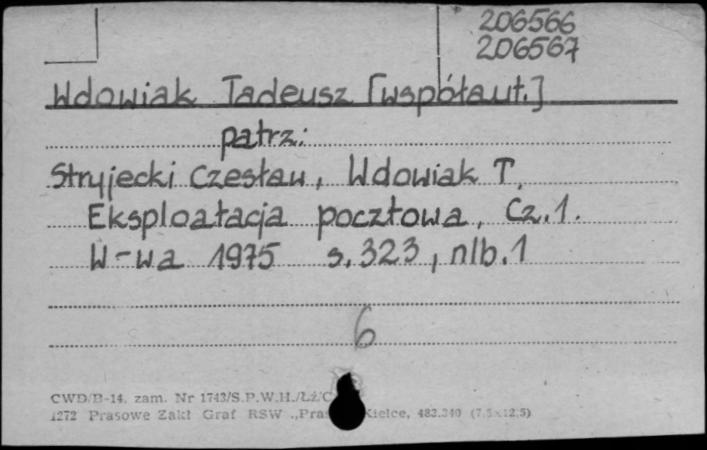 206566
206567
Wdowiak Tadeusz [współaut.]
patrz:
Stryjecki Czesław, Wdowiak T.
Eksploatacja pocztowa, Cz. 1.
W-wa 1975 s. 323, nlb. 1
6
CWD/B-14, zam. Nr 1743/S.P.W.H./Łż/
1272 Prasowe Zakł Graf RSW „Pras Kielce, 483.340 (7,5x12,5)